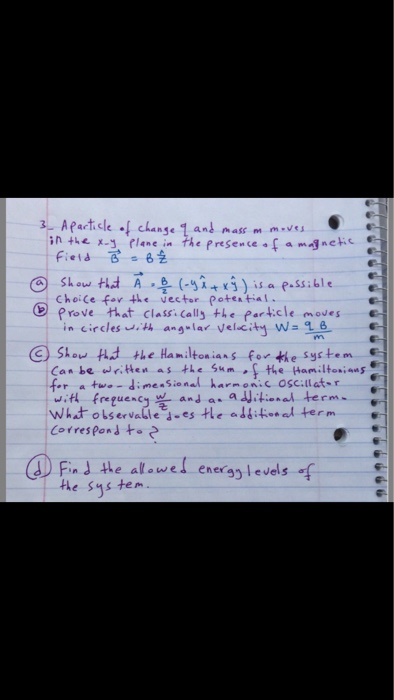 3- A particle of change q and mass m moves
in the x-y plane in the presence of a magnetic
field B⃗ = B ẑ
(a) Show that A⃗ = B/2 (-y î + x ĵ) is a possible
choice for the vector potential.
(b) prove that classically the particle moves
in circles with angular velocity W = qB/m
(c) Show that the Hamiltonians for the system
Can be written as the sum of the Hamiltonians
for a two-dimensional harmonic oscillator
with frequency w/2 and an additional term.
What observable does the additional term
Correspond to?
(d) Find the allowed energy levels of
the system.